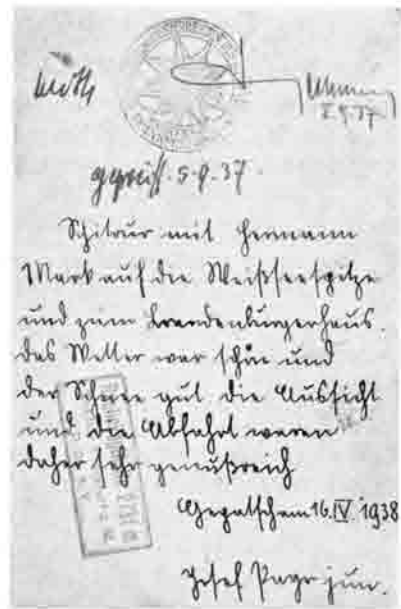 geprüft. 5.9.37.
Schitour mit Hermann
Mark auf die Weißseespitze
und zum Brandenburgerhaus.
das Wetter war schön und
der Schnee gut die Aussicht
und die Abfahrt waren
daher sehr genußreich
Gepatsch am 16. IV. 1938
Josef Praxmarer jun.